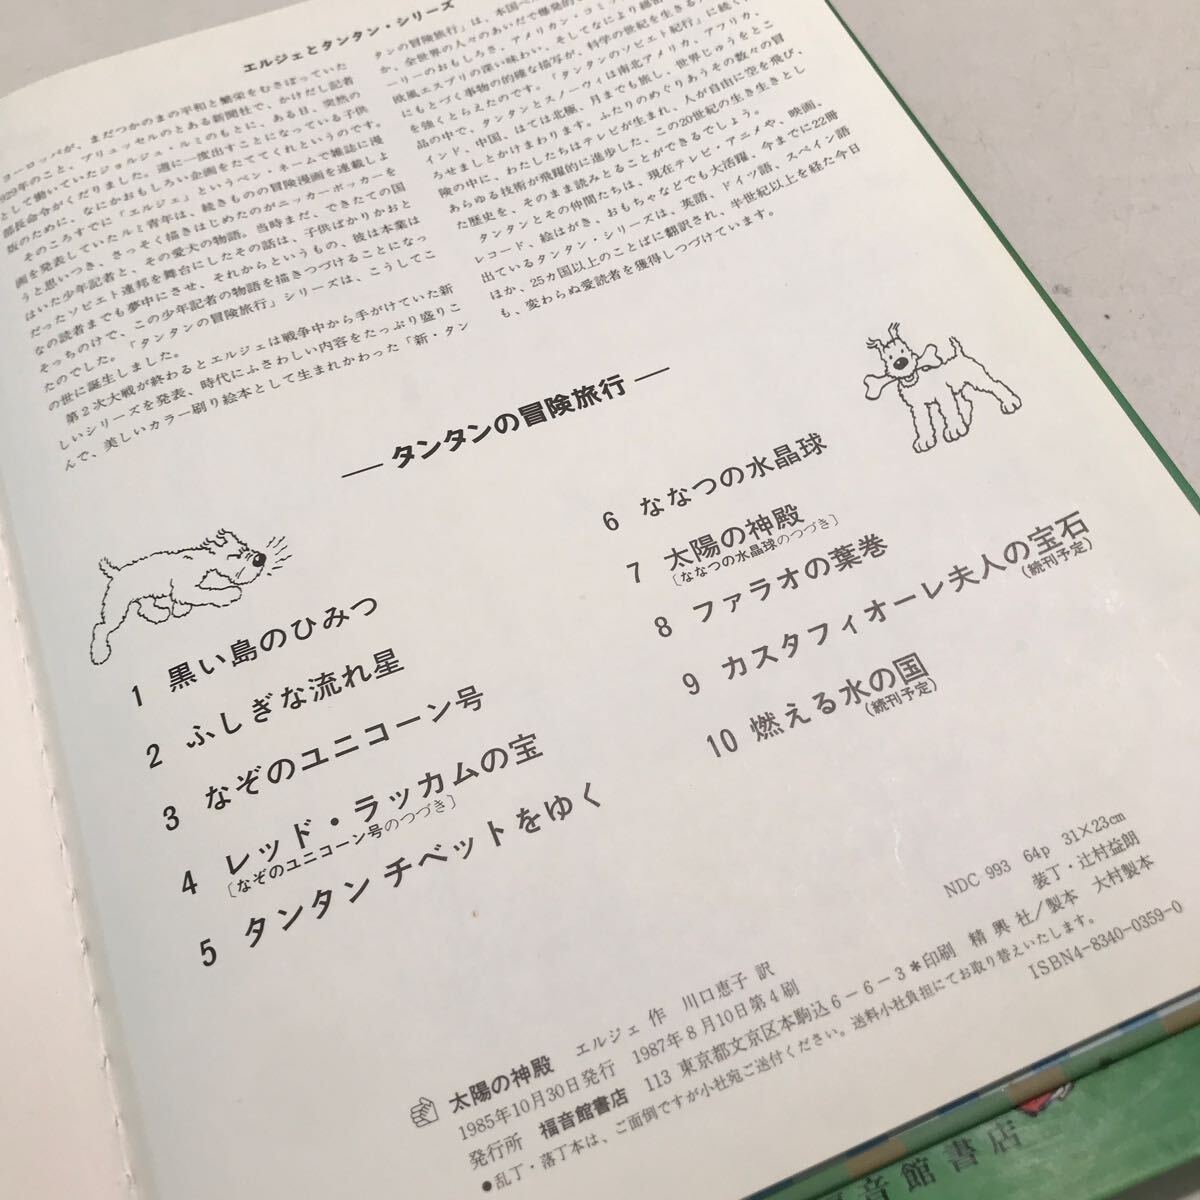 エルジェとタンタン・シリーズ
ヨーロッパが、まだつかのまの平和と繁栄をむさぼっていた
929年のこと、ブリュッセルのとある新聞社で、かけだし記者
として働いていたジョルジュ・ルミのもとに、ある日、突然の
部長命令がくだりました。週に一度出すことになっている子供
版のために、なにかおもしろい企画をたててくれというのです。
そのころすでに「エルジェ」というペン・ネームで雑誌に漫
画を発表していたルミ青年は、続きものの冒険漫画を連載しよ
うと思いつき、さっそく描きはじめたのがニッカーボッカーを
はいた少年記者と、その愛犬の物語。当時まだ、できたての国
だったソビエト連邦を舞台にしたその話は、子供ばかりかおと
なの読者までも夢中にさせ、それからというもの、彼は本業は
そっちのけで、この少年記者の物語を描きつづけることになっ
たのでした。「タンタンの冒険旅行」シリーズは、こうしてこ
の世に誕生しました。
第2次大戦が終わるとエルジェは戦争中から手がけていた新
しいシリーズを発表、時代にふさわしい内容をたっぷり盛りこ
んで、美しいカラー刷り絵本として生まれかわった「新・タン
タンの冒険旅行」は、本国ベル
か、全世界の人々のあいだで爆発的な
ーリーのおもしろさ、アメリカン・コミッ
欧風エスプリの深い味わい、そしてなにより綿密
にもとづく事物の的確な描写が、科学の世紀を生きる
を強くとらえたのです。「タンタンのソビエト紀行」に続く
品の中で、タンタンとスノーウィは南北アメリカ、アフリカ、
インド、中国、はては北極、月までも旅し、世界じゅうをとこ
ろせましとかけまわります。ふたりのめぐりあうその数々の冒
険の中に、わたしたちはテレビが生まれ、人が自由に空を飛び、
あらゆる技術が飛躍的に進歩した、この20世紀の生き生きとし
た歴史を、そのまま読みとることができるでしょう。
タンタンとその仲間たちは、現在テレビ・アニメや、映画、
レコード、絵はがき、おもちゃなどでも大活躍、今までに22冊
出ているタンタン・シリーズは、英語、ドイツ語、スペイン語
ほか、25ヵ国以上のことばに翻訳され、半世紀以上を経た今日
も、変わらぬ愛読者を獲得しつづけています。
—タンタンの冒険旅行—
1 黒い島のひみつ
2 ふしぎな流れ星
3 なぞのユニコーン号
4 レッド・ラッカムの宝
〔なぞのユニコーン号のつづき〕
5 タンタン チベットをゆく
6 ななつの水晶球
7 太陽の神殿
〔ななつの水晶球のつづき〕
8 ファラオの葉巻
9 カスタフィオーレ夫人の宝石
(続刊予定)
10 燃える水の国
(続刊予定)
NDC 993 64p 31×23cm
装丁・辻村益朗
太陽の神殿 エルジェ 作 川口恵子 訳
1985年10月30日発行 1987年8月10日第4刷
発行所 福音館書店 113 東京都文京区本駒込6-6-3＊印刷 精興社／製本 大村製本
●乱丁・落丁本は、ご面倒ですが小社宛ご送付ください。送料小社負担にてお取り替えいたします。
ISBN4-8340-0359-0
福音館書店